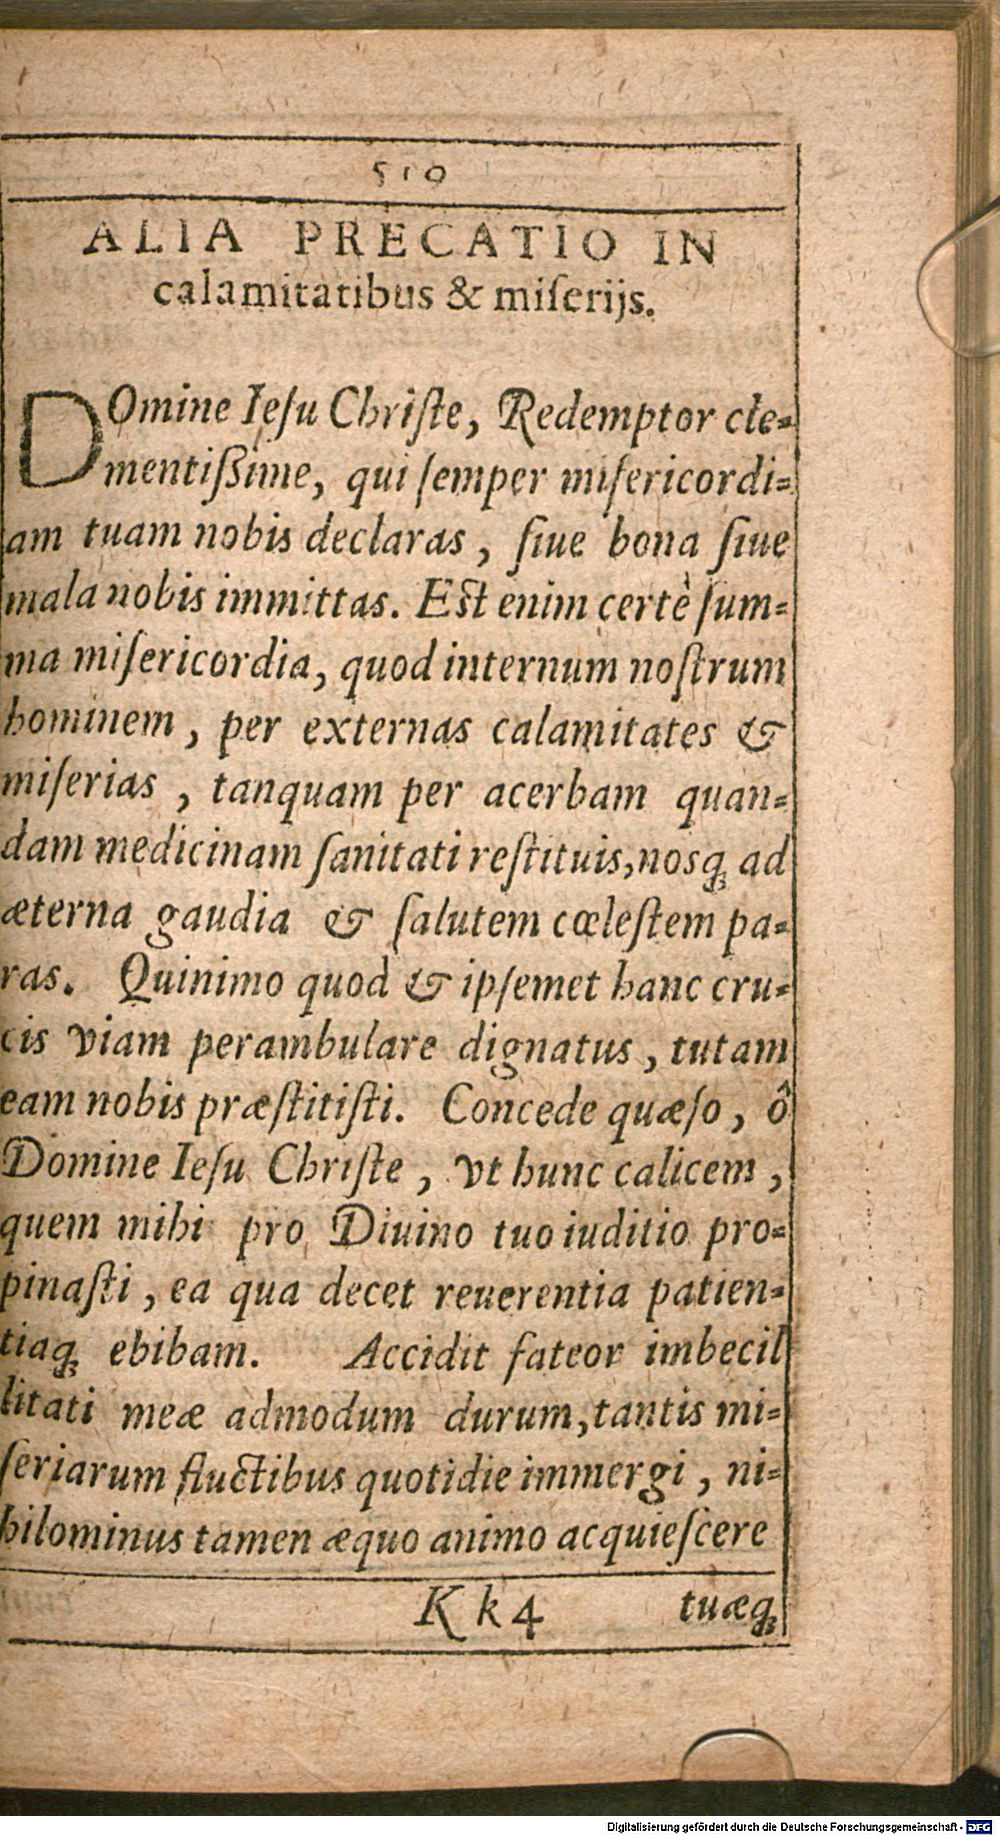 510
ALIA PRECATIO IN
calamitatibus & miſerijs.
DOmine Ieſu Chriſte, Redemptor cle-
mentiſsime, qui ſemper miſericordi-
am tuam nobis declaras, ſiue bona ſiue
mala nobis immittas. Est enim certè ſum-
ma miſericordia, quod internum noſtrum
hominem, per externas calamitates &
miſerias, tanquam per acerbam quan-
dam medicinam ſanitati reſtituis, nosq́ꝫ ad
æterna gaudia & ſalutem cœleſtem pa-
ras. Quinimo quod & ipſemet hanc cru-
cis viam perambulare dignatus, tutam
eam nobis præſtitiſti. Concede quæſo, ô
Domine Ieſu Chriſte, vt hunc calicem,
quem mihi pro Diuino tuo iuditio pro-
pinaſti, ea qua decet reuerentia patien-
tiaqꝫ ebibam. Accidit fateor imbecil
litati meæ admodum durum, tantis mi-
ſeriarum fluctibus quotidie immergi, ni-
hilominus tamen æquo animo acquieſcere
K k 4 tuæqꝫ
Digitalisierung gefördert durch die Deutsche Forschungsgemeinschaft - DFG